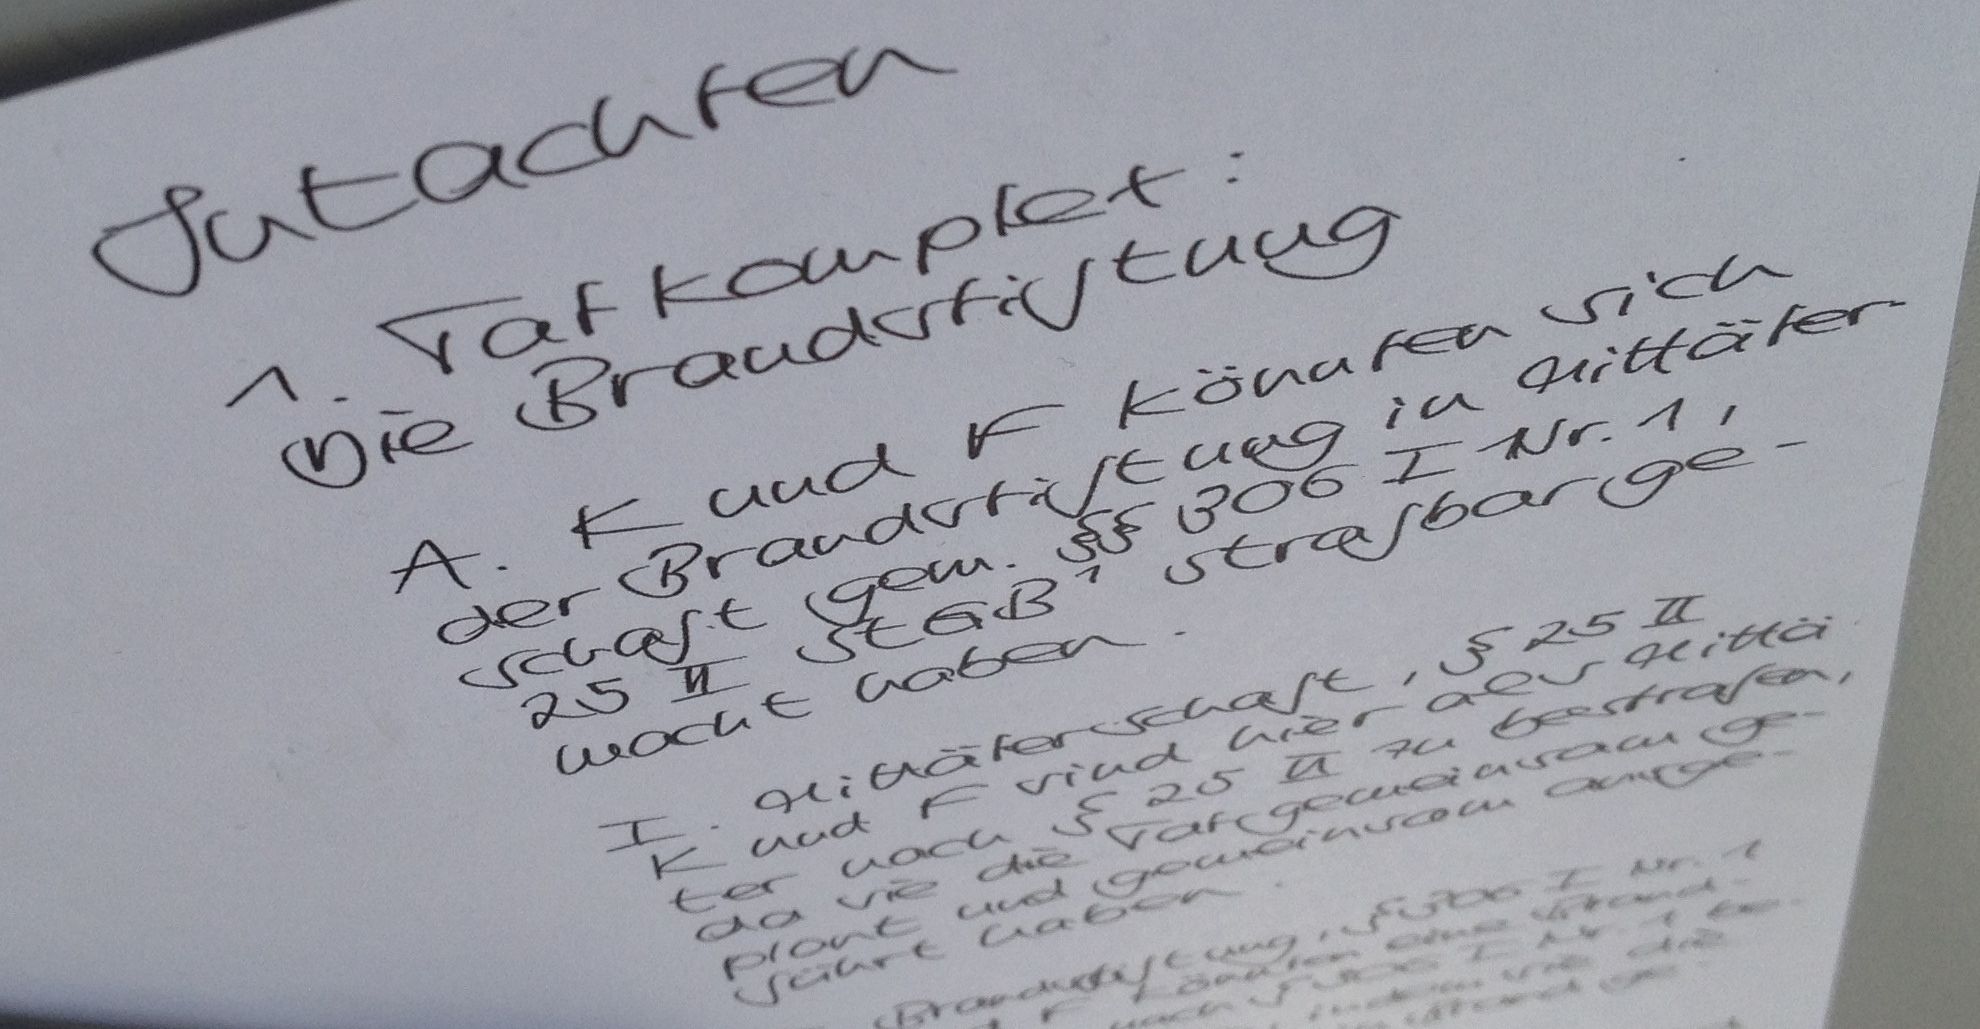 Gutachten
1. Tatkomplex:
Die Brandstiftung
A. K und F könnten sich
der Brandstiftung in Mittäter-
schaft gem. §§ 306 I Nr. 1,
25 II StGB¹ strafbar ge-
macht haben.
I. Mittäterschaft, § 25 II
K und F sind hier als Mittä
ter nach § 25 II zu bestrafen,
da sie die Tat gemeinsam ge-
plant und gemeinsam ausge-
führt haben.
Brandstiftung, § 306 I Nr. 1
F könnten eine Brand-
nach § 306 I Nr. 1 be-
indem sie die